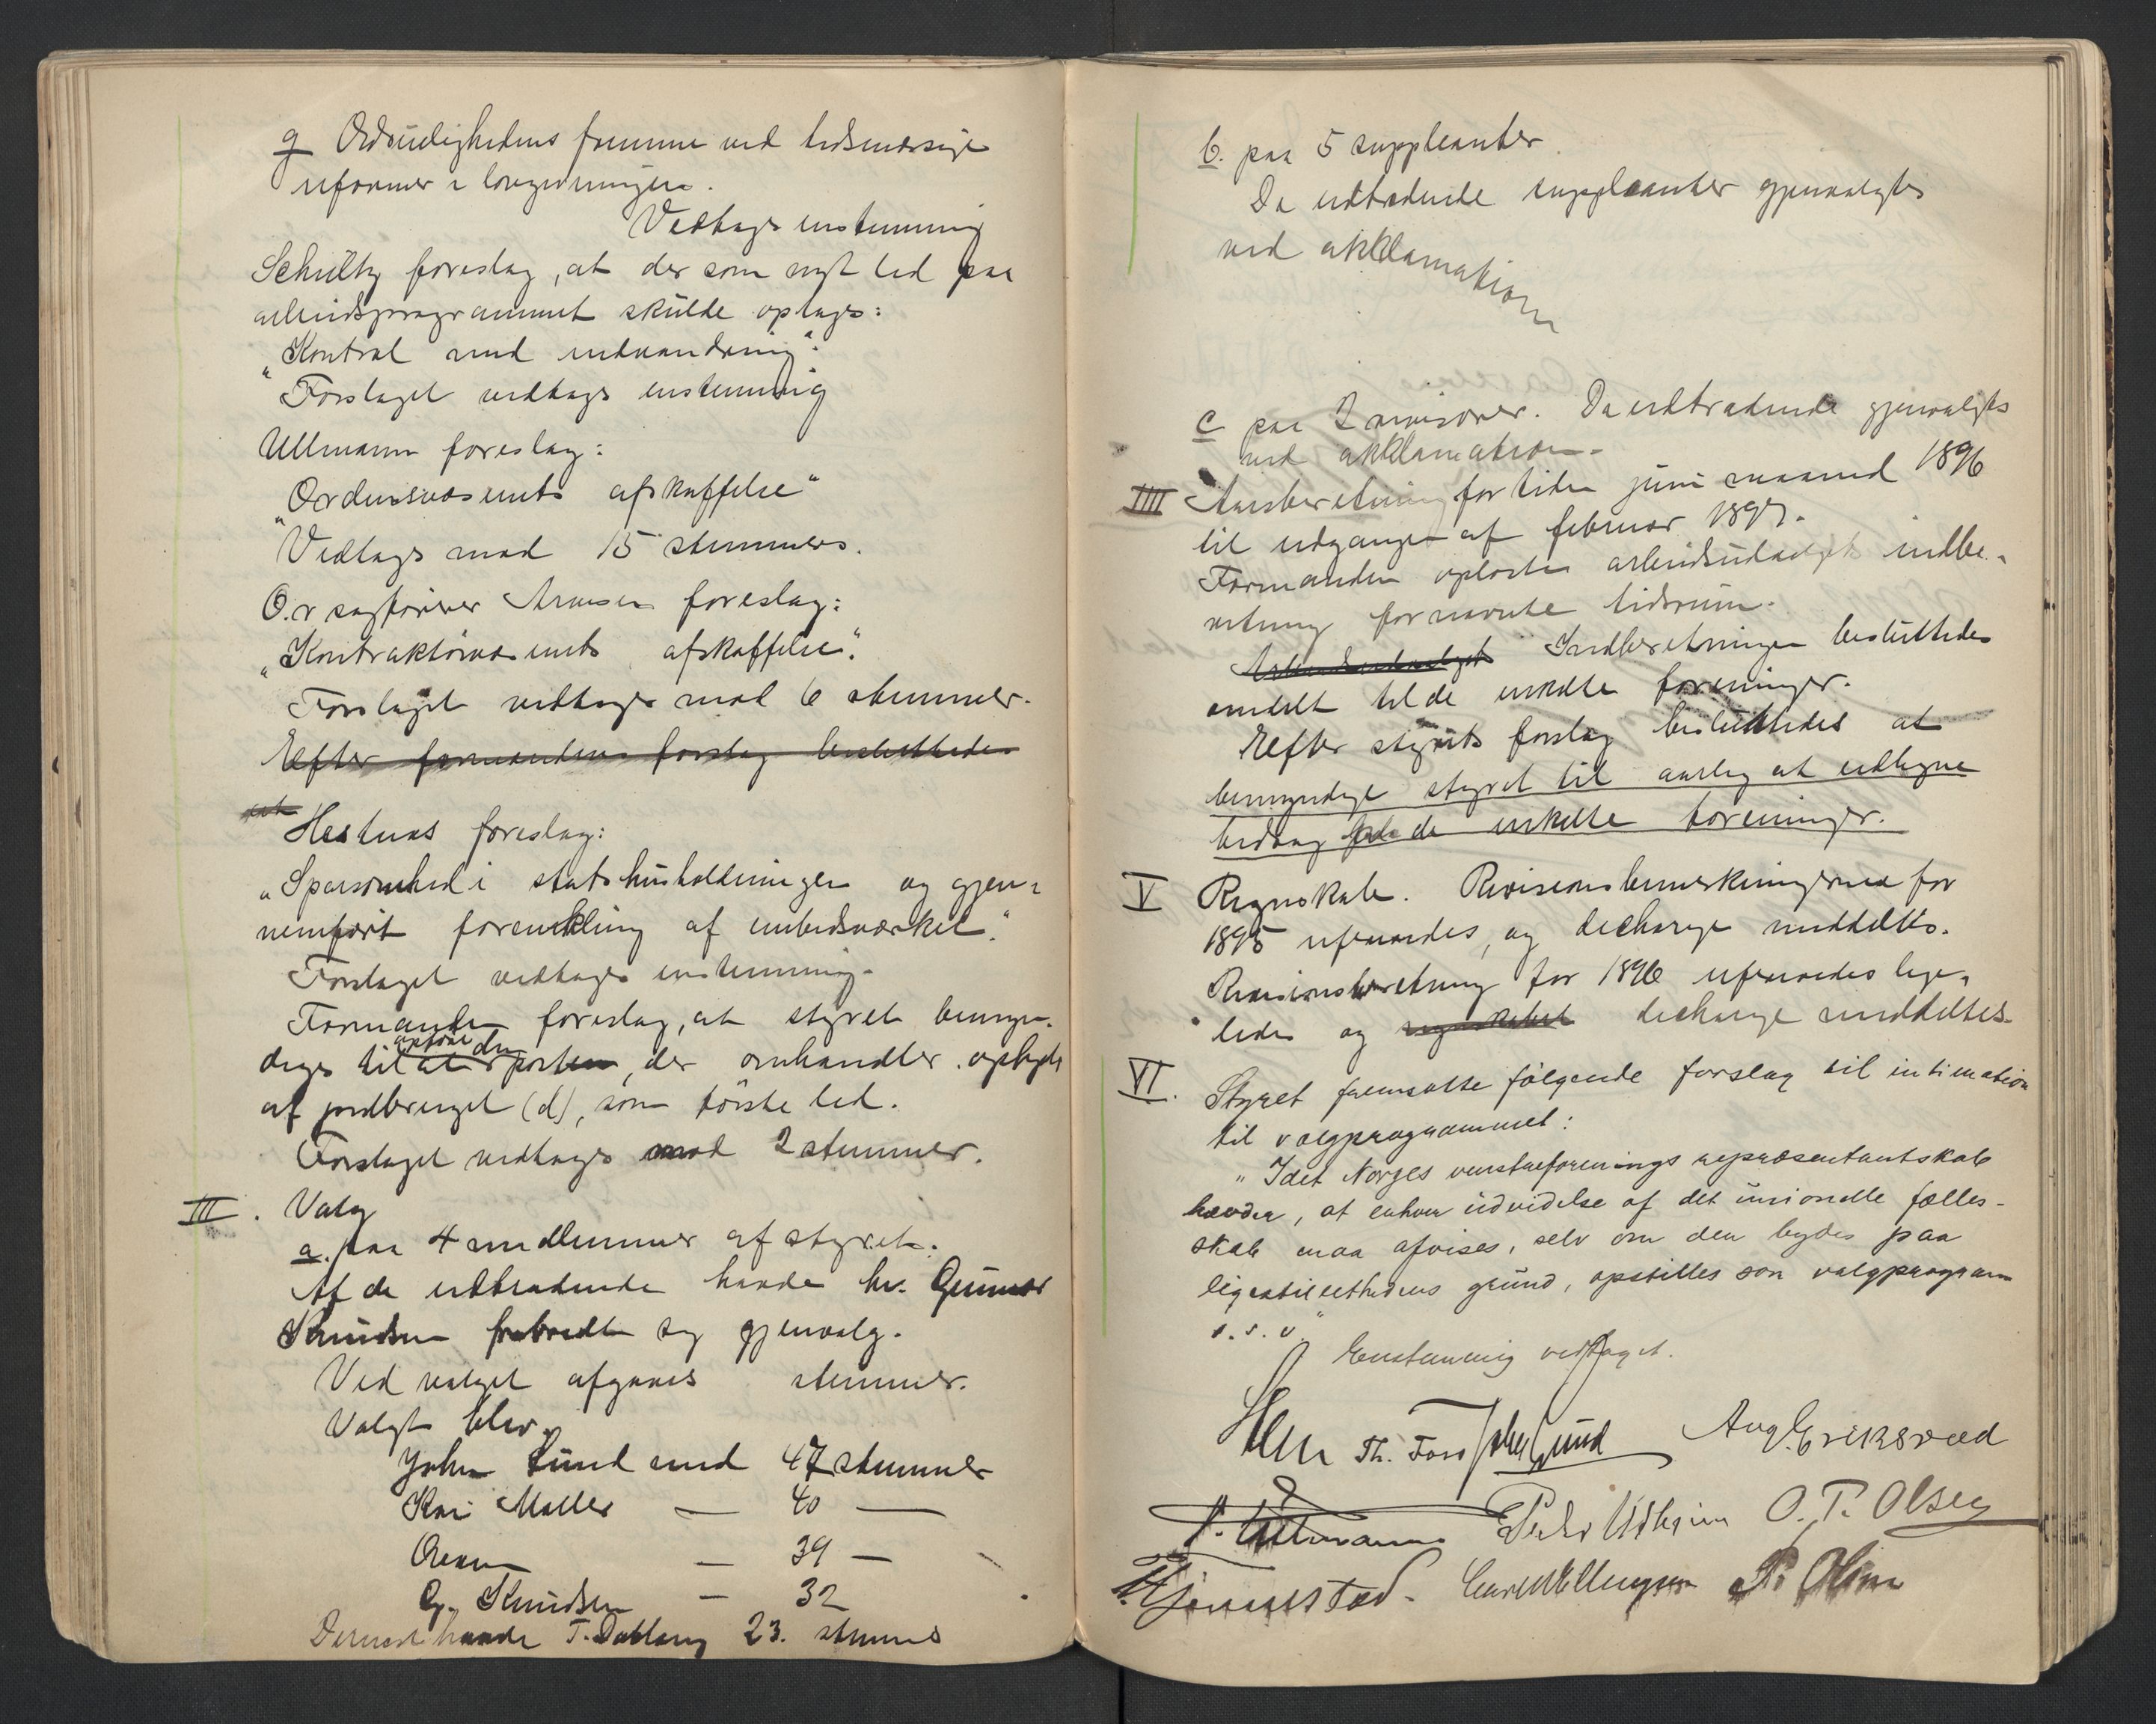 g Ædruelighedens fremme ved tidsmæssige
reformer i lovgivningen.
Vedtages enstemmig
Schultz foreslog, at der som nyt led paa
arbeidsprogrammet skulde optages:
„Kontrol med indvandring".
Forslaget vedtages enstemmig
Ullmann foreslog:
„Ordensvæsenets afskaffelse"
Vedtages mod 15 stemmer.
O.r sagfører foreslog:
„Kontraktørvæsenets afskaffelse".
Forslaget vedtages mod 6 stemmer.
Efter formandens forslag besluttedes
at
Hestnes foreslog:
„Sparsomhed i statshusholdningen og gjen-
nemført forenkling af embedsverket."
Forslaget vedtages enstemmig.
Formanden foreslog, at styret bemyn-
diges til at opføre den post, der omhandler ophjelp
af jordbruget (d), som første led.
Forslaget vedtages mod 2 stemmer.
III. Valg
a. paa 4 medlemmer af styret.
Af de udtrædende havde hr. Gunnar
Knudsen frabedt sig gjenvalg.
Ved valget afgaves stemmer.
Valgt blev
John Lund med 47 stemmer
Kai Møller — 40 —
— 39 —
G. Knudsen — 32
Dernest havde T. 23. stemmer
b. paa 5 suppleanter
De udtrædende suppleanter gjenvalgtes
ved akklamation
c paa 2 revisorer. De udtrædende gjenvalgtes
ved akklamation.
IIII Aarsberetning for tiden juni maaned 1896
til udgangen af februar 1897.
Formanden oplæste arbeidsudvalgets indbe-
retning for nævnte tidsrum.
Arbeidsudvalgets Indberetningen besluttedes
omdelt til de enkelte foreninger.
Efter styrets forslag besluttedes at
bemyndige styret til aarlig at udligne
bidrag paa de enkelte foreninger.
V Regnskab. Revisionsbemerkningerne for
1895 refereredes, og decharge meddeltes.
Revisionsberetning for 1896 refereredes lige-
ledes og regnskabet decharge meddeltes.
VI. Styret fremsatte følgende forslag til intimation
til valgprogrammet:
„Idet Norges venstreforenings repræsentantskab
hævder, at enhver udvidelse af det unionelle fælles-
skab maa afvises, selv om den bydes paa
ligestillethedens grund, opstilles som valgprogram
o.s.v."
Enstemmig vedtaget.
Th. Foss John Lund Aug. Eriksrød
V. Ullmann O. T. Olsen